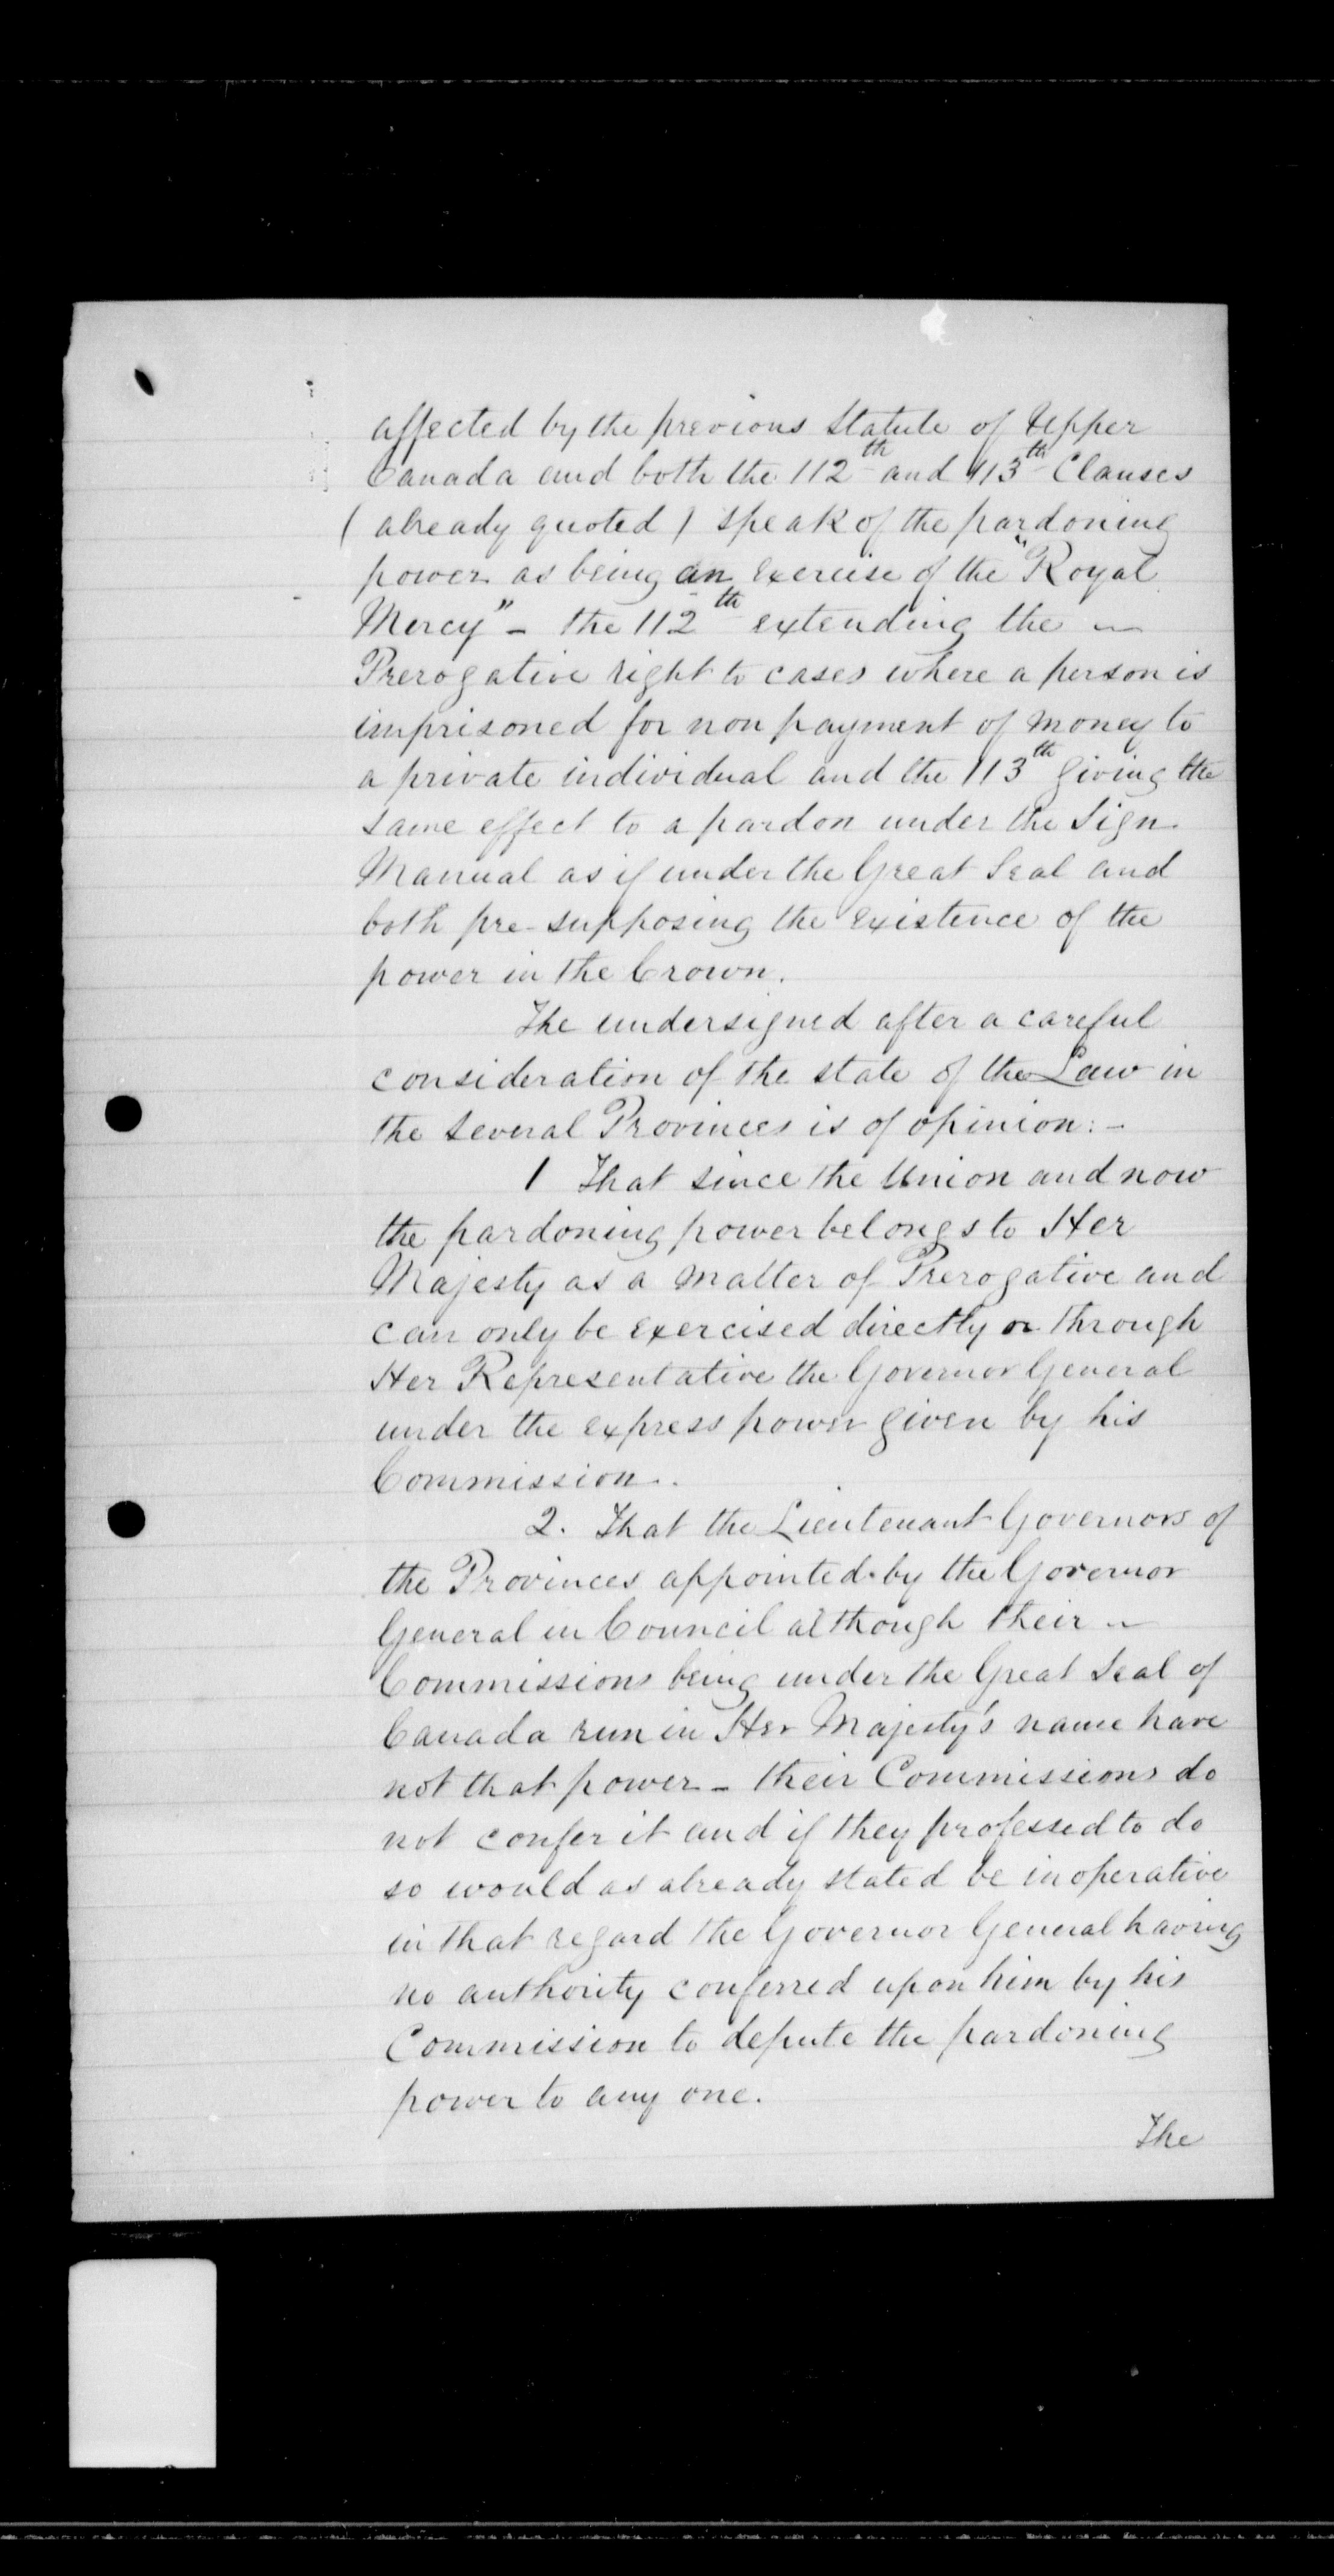 affected by the previous Statute of Upper
Canada and both the 112th and 113th Clauses
(already quoted) speak of the pardoning
power as being an exercise of the "Royal
Mercy" - the 112th extending the
Prerogative right to cases where a person is
imprisoned for non payment of money to
a private individual and the 113th giving the
same effect to a pardon under the Sign
Manual as if under the Great Seal and
both pre-supposing the existence of the
power in the Crown.
The undersigned after a careful
consideration of the state of the Law in
the several Provinces is of opinion:-
1 That since the Union and now
the pardoning power belongs to Her
Majesty as a matter of Prerogative and
can only be exercised directly or through
Her Representative the Governor General
under the express power given by his
Commission.
2. That the Lieutenant Governors of
the Provinces appointed by the Governor
General in Council although their
Commissions being under the Great Seal of
Canada run in Her Majesty's name have
not that power - their Commissions do
not confer it and if they professed to do
so would as already stated be inoperative
in that regard the Governor General having
no authority conferred upon him by his
Commission to depute the pardoning
power to any one.
The